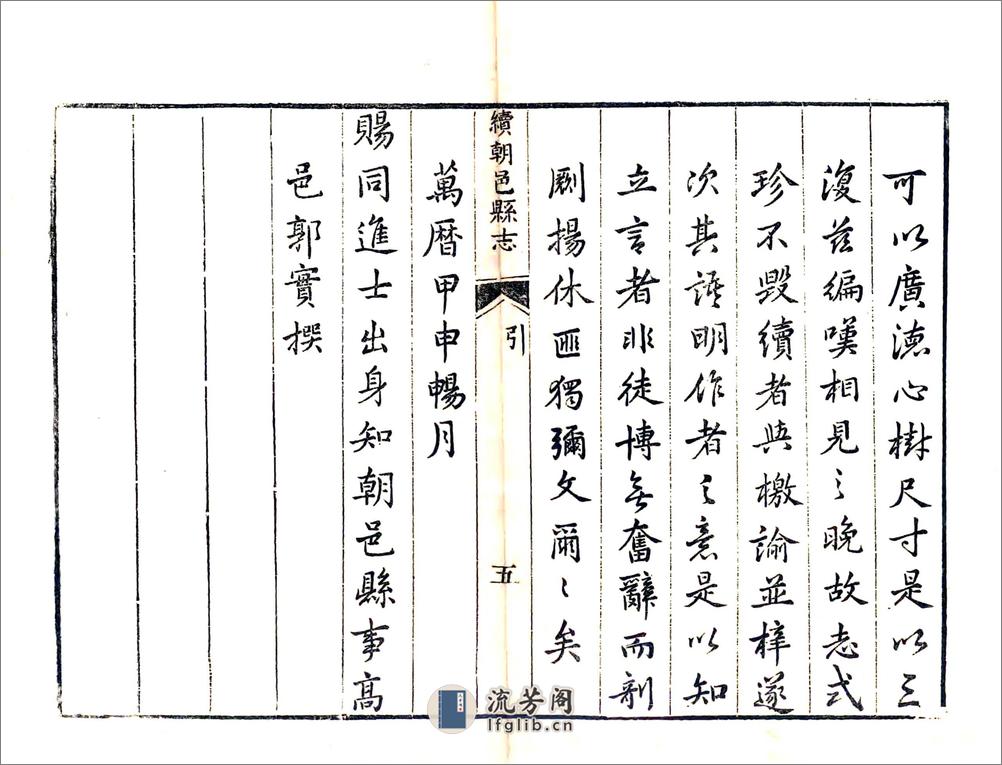 可以廣德心樹尺寸是以三
復茲編嘆相見之晚故志式
珍不毀續者與檄諭並梓遂
次其語明作者之意是以知
立言者非徒博無奮辭而剞
劂揚休匪獨彌文爾〻矣
續朝邑縣志
引
五
萬曆甲申暢月
賜同進士出身知朝邑縣事高
邑郭實撰
流芳阁
lfglib.cn